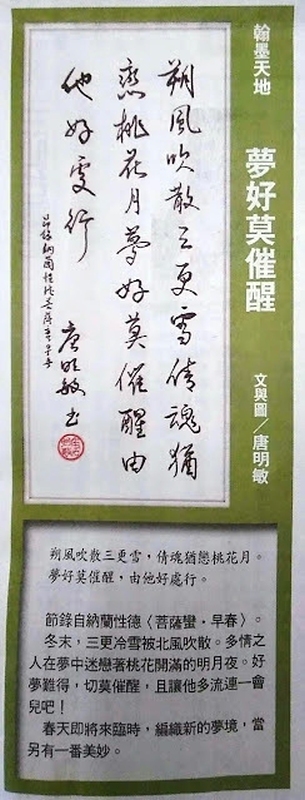 翰墨天地
夢好莫催醒
文與圖／唐明敏
朔風吹散三更雪倩魂猶
戀桃花月夢好莫催醒由
他好處行
唐明敏書
朔風吹散三更雪，倩魂猶戀桃花月。
夢好莫催醒，由他好處行。
節錄自納蘭性德〈菩薩蠻・早春〉。
冬末，三更冷雪被北風吹散。多情之
人在夢中迷戀著桃花開滿的明月夜。好
夢難得，切莫催醒，且讓他多流連一會
兒吧！
春天即將來臨時，編織新的夢境，當
另有一番美妙。